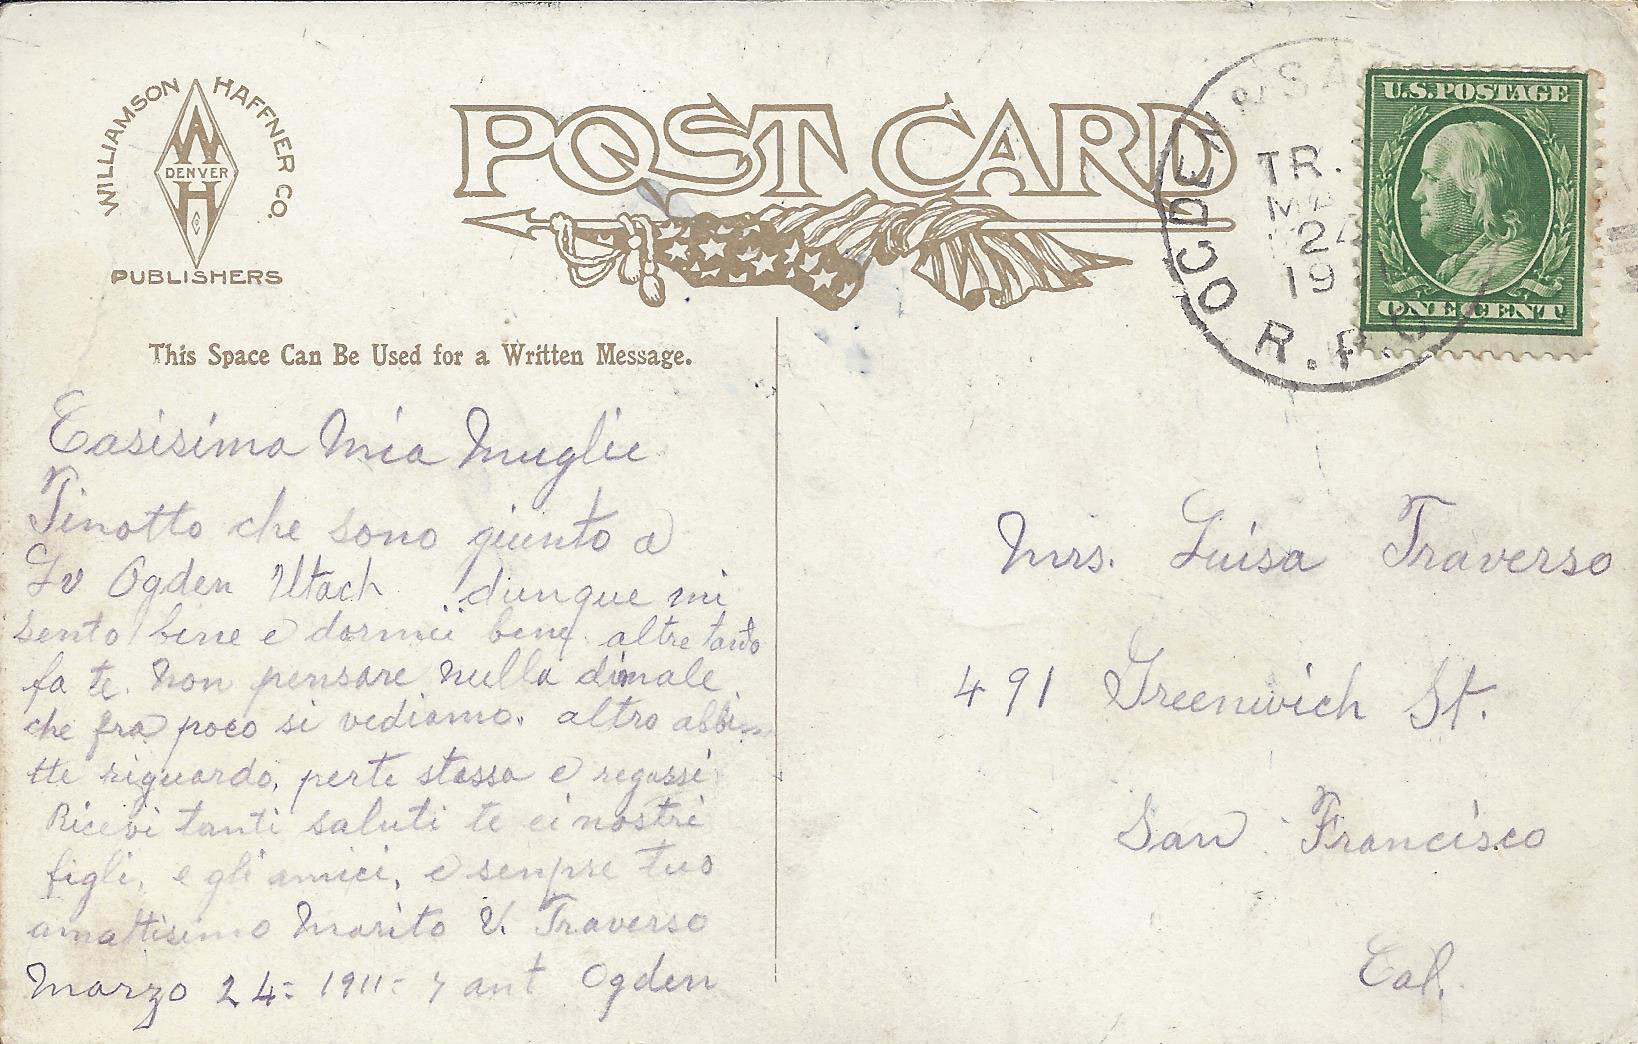 WILLIAMSON HAFFNER CO.
DENVER
PUBLISHERS
POST CARD
OGDEN & SA
TR.
MA
24
19
R.P.O
U.S. POSTAGE
ONE CENT
This Space Can Be Used for a Written Message.
Casisima Mia Muglie
Tinotto che sono giunto a
Ogden Utach dunque mi
sento bene e dormii bene altre tanto
fa te. Non pensare nulla dimale
che fra poco si vediamo. altro abbi
tte riguardo, perte stessa e regassi
Ricevi tanti saluti te ei nostri
figli, e gli amici, e senpre tuo
amattisimo Marito V. Traverso
Marzo 24 = 1911 - 7 ant Ogden
Mrs. Luisa Traverso
491 Greenwich St.
San Francisco
Cal.